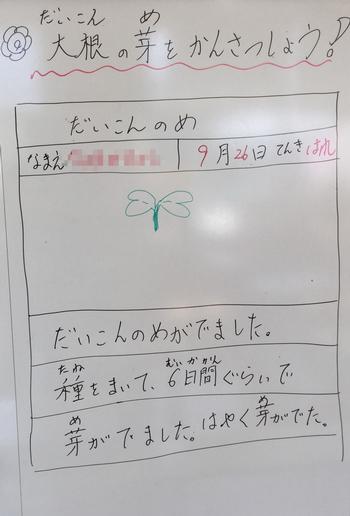 だいこん め
大根の芽をかんさつしよう!
だいこんのめ
なまえ 9月26日 てんき はれ
だいこんのめがでました。
たね むいかかん
種をまいて、6日間ぐらいで
め め
芽がでました。はやく芽がでた。